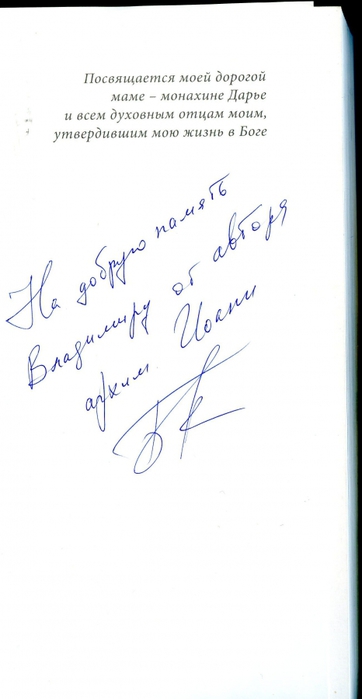 Посвящается моей дорогой
маме – монахине Дарье
и всем духовным отцам моим,
утвердившим мою жизнь в Боге
На добрую память
Владимиру от автора
архим Иоанн